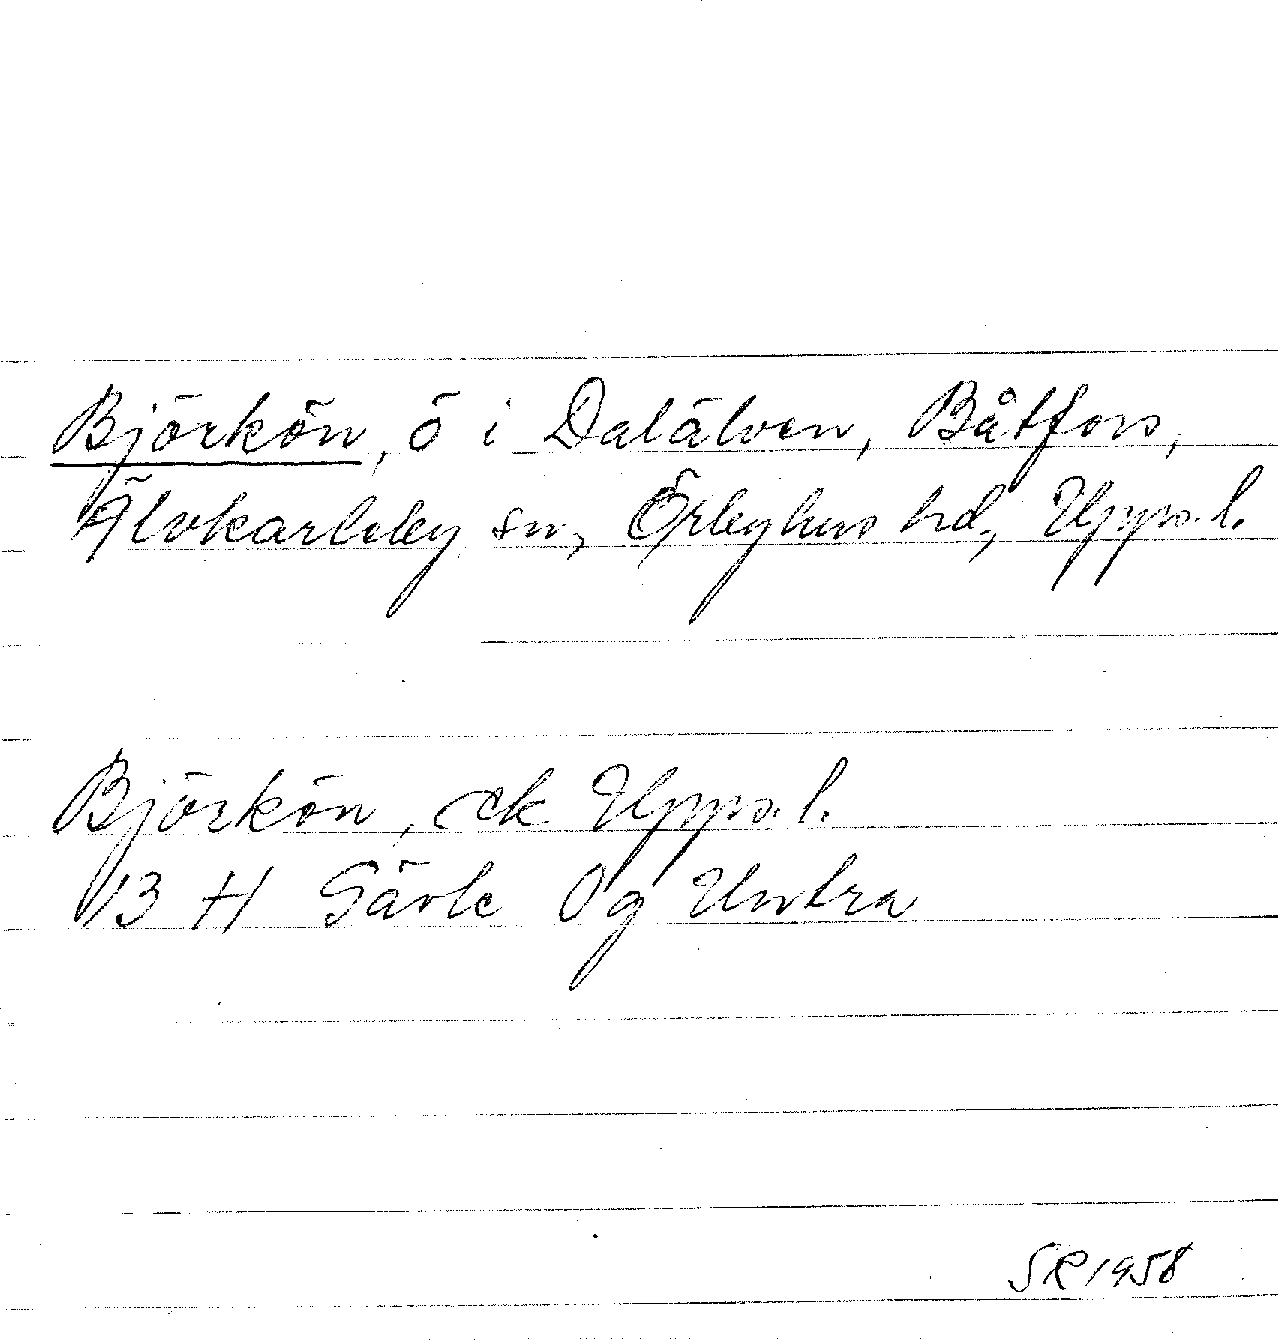 Björkön, ö i Dalälven, Båtfors,
Älvkarleby sn, Örbyhus hd, Upps. l.
Björkön, ek Upps. l.
13 H Gävle 0g Untra
SR 1958